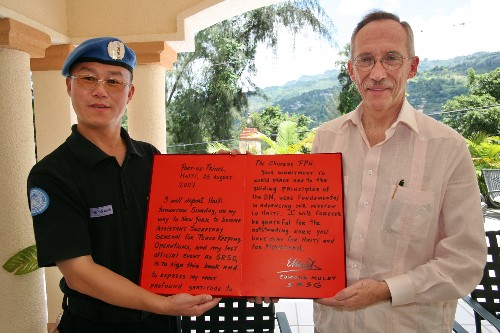 Port-au-Prince,
Haiti, 25 August
2007
I will depart Haiti
tomorrow Sunday, on my
way to New York to become
Assistant Secretary
General for Peace Keeping
Operations, and my last
official event as SRSG,
is to sign this book and
to express my most
profound gratitude to
The Chinese FPU.
Your commitment to
world peace and to the
guiding principles of
the UN, were fundamental
in advancing our mission
in Haiti. I will forever
be grateful for the
outstanding work you
have done for Haiti and
for MINUSTAH.
Edmond Mulet
SRSG